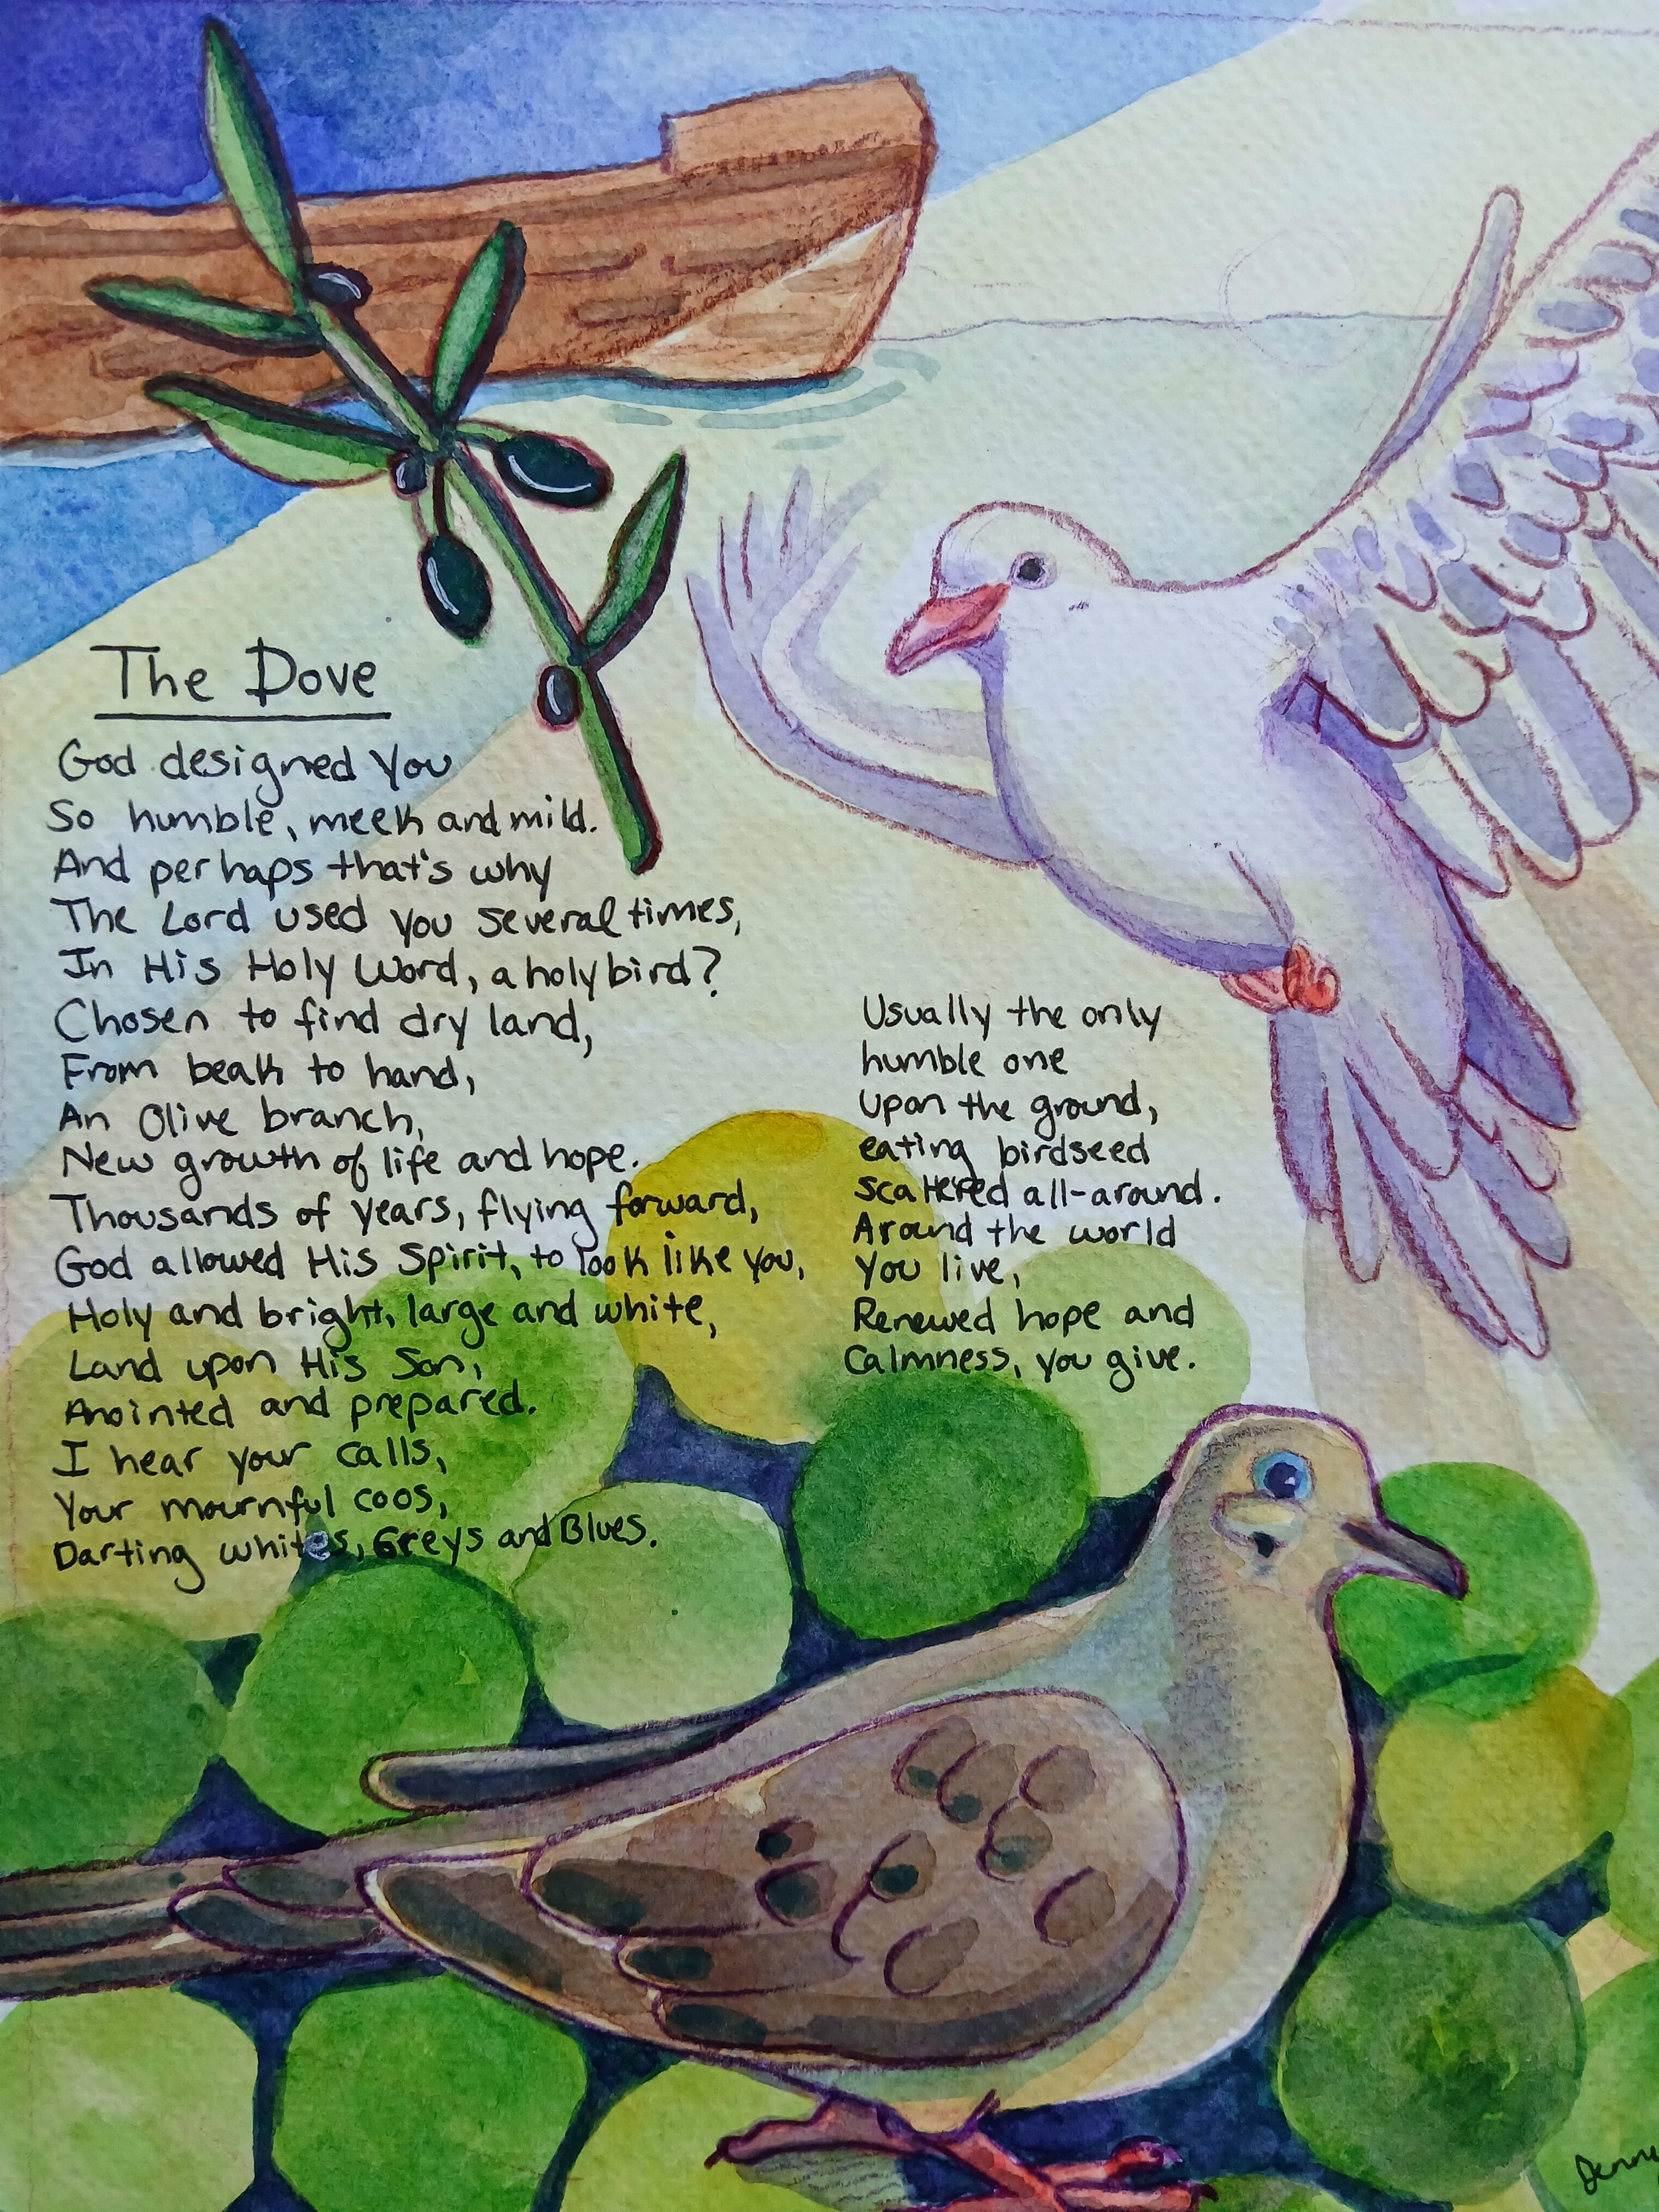 The Dove
God designed You
So humble, meek and mild.
And perhaps that's why
The Lord used you several times,
In His Holy Word, a holy bird?
Chosen to find dry land,
From beak to hand,
An Olive branch,
New growth of life and hope.
Thousands of years, flying forward,
God allowed His Spirit, to look like you,
Holy and bright, large and white,
Land upon His Son,
Anointed and prepared.
I hear your calls,
Your mournful coos,
Darting whites, Greys and Blues.
Usually the only
humble one
Upon the ground,
eating birdseed
scattered all-around.
Around the world
You live,
Renewed hope and
Calmness, you give.